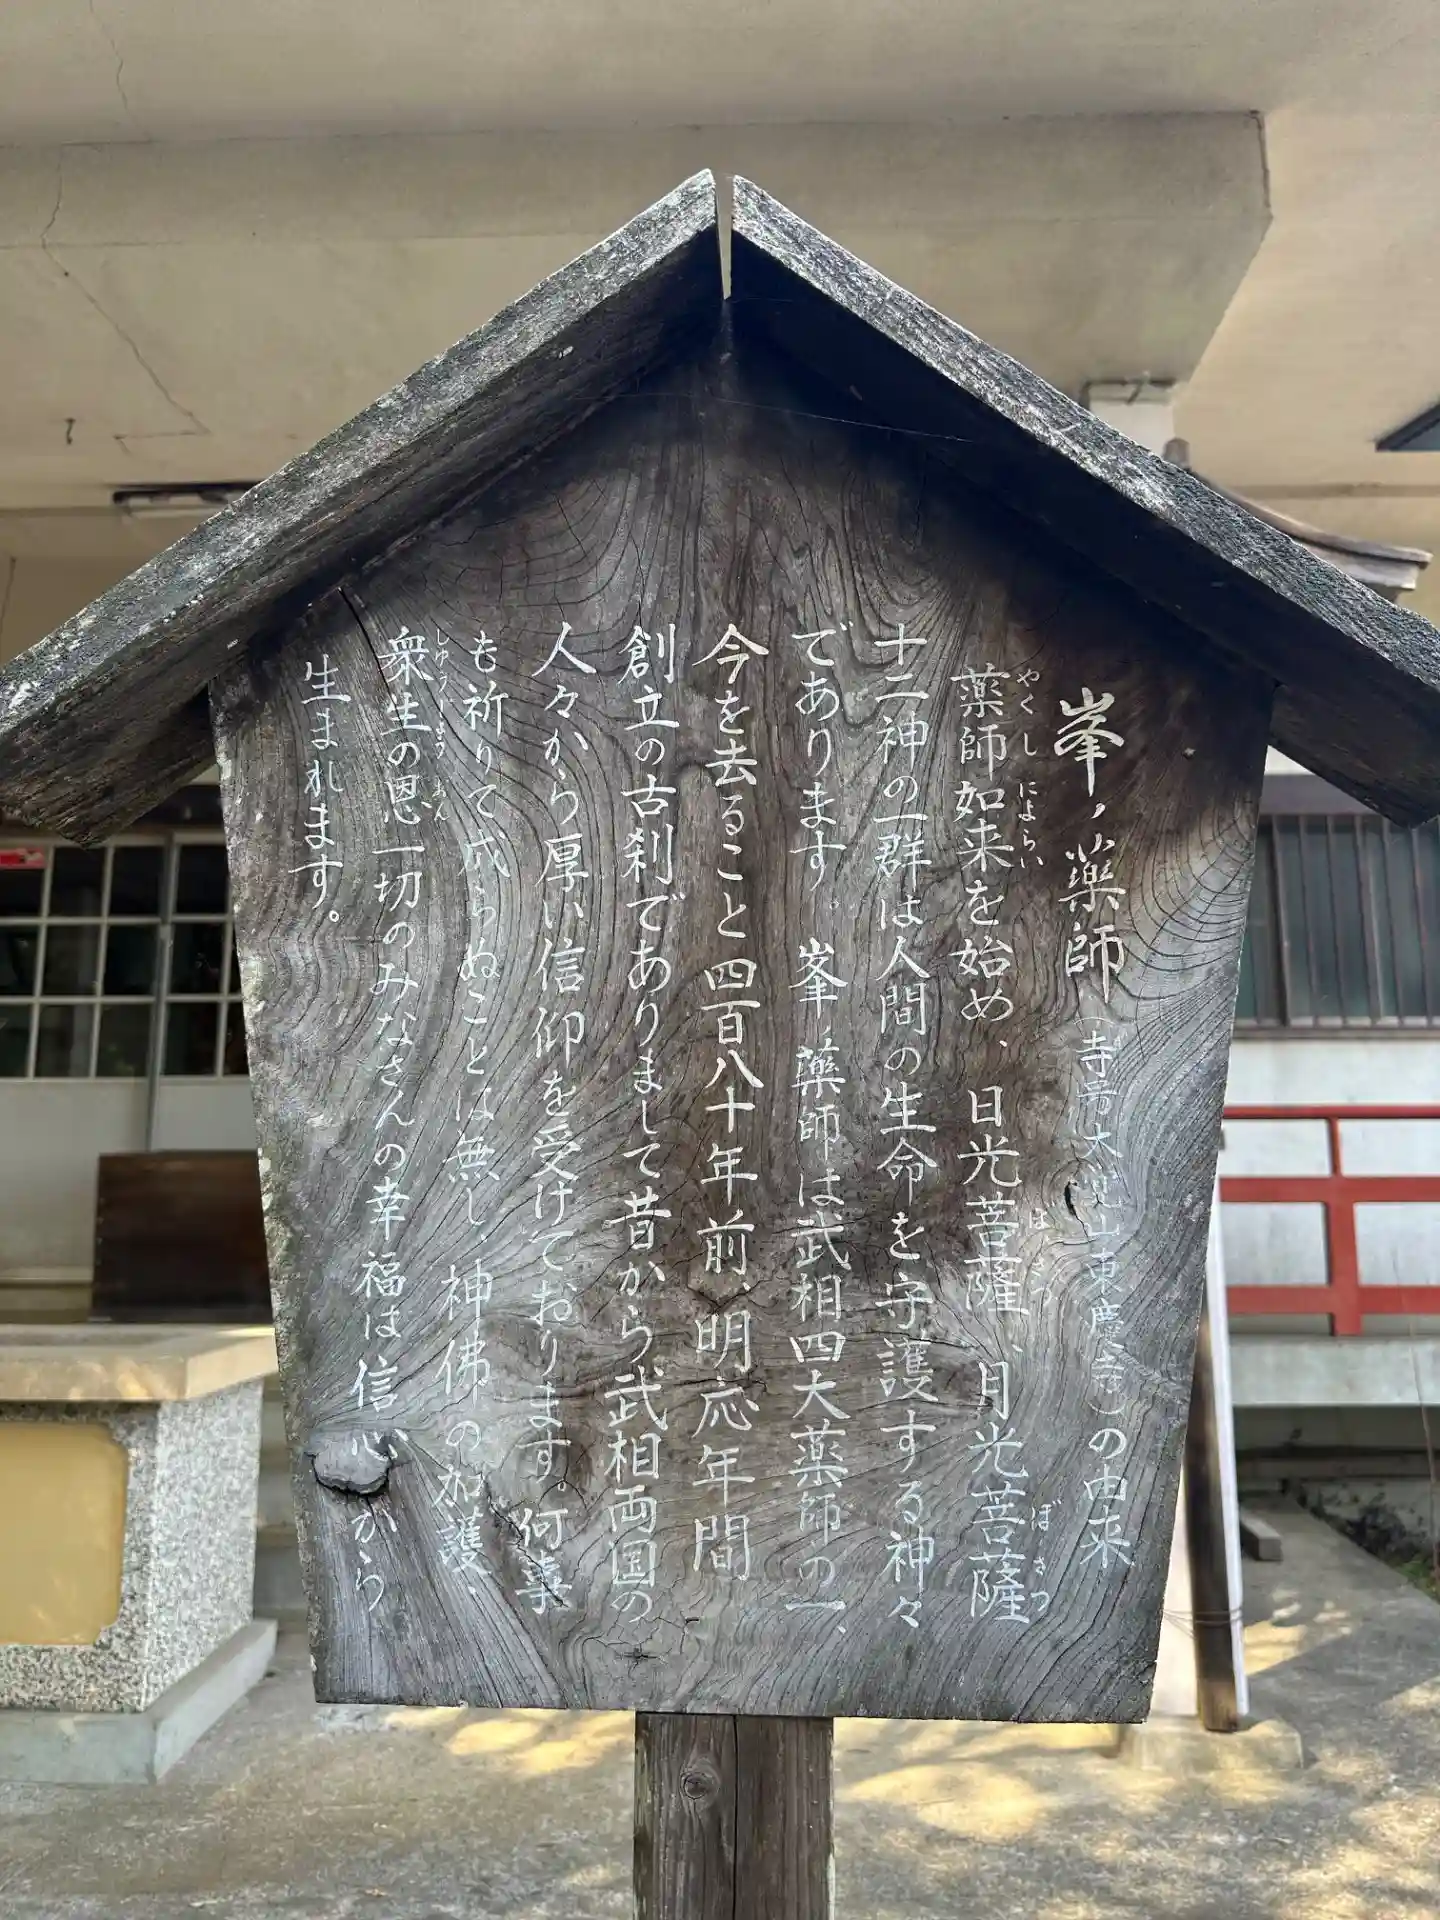 峯ノ薬師（寺号大覚山東慶寺）の由来
薬師如来を始め、日光菩薩、月光菩薩
やくし にょらい ぼさつ ぼさつ
十二神の一群は人間の生命を守護する神々
であります。峯ノ薬師は武相四大薬師の一、
今を去ること四百八十年前、明応年間
創立の古刹でありまして昔から武相両国の
人々から厚い信仰を受けております。何事
も祈りて成らぬことは無し、神佛の加護、
衆生の恩一切のみなさんの幸福は信心から
しゅうじょう おん
生まれます。